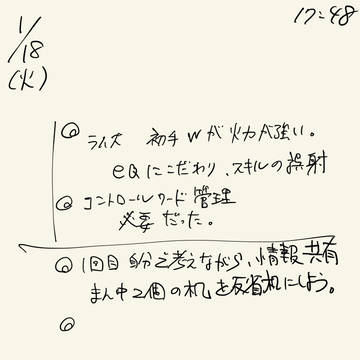 1/18
(火)
17:48
ライズ 初手Wが火力が強い。
eQにこだわり、スキルの誤射
コントロールワード管理
必要だった。
1回目自分で考えながら、情報共有
まん中2個の机を反省机にしよう。